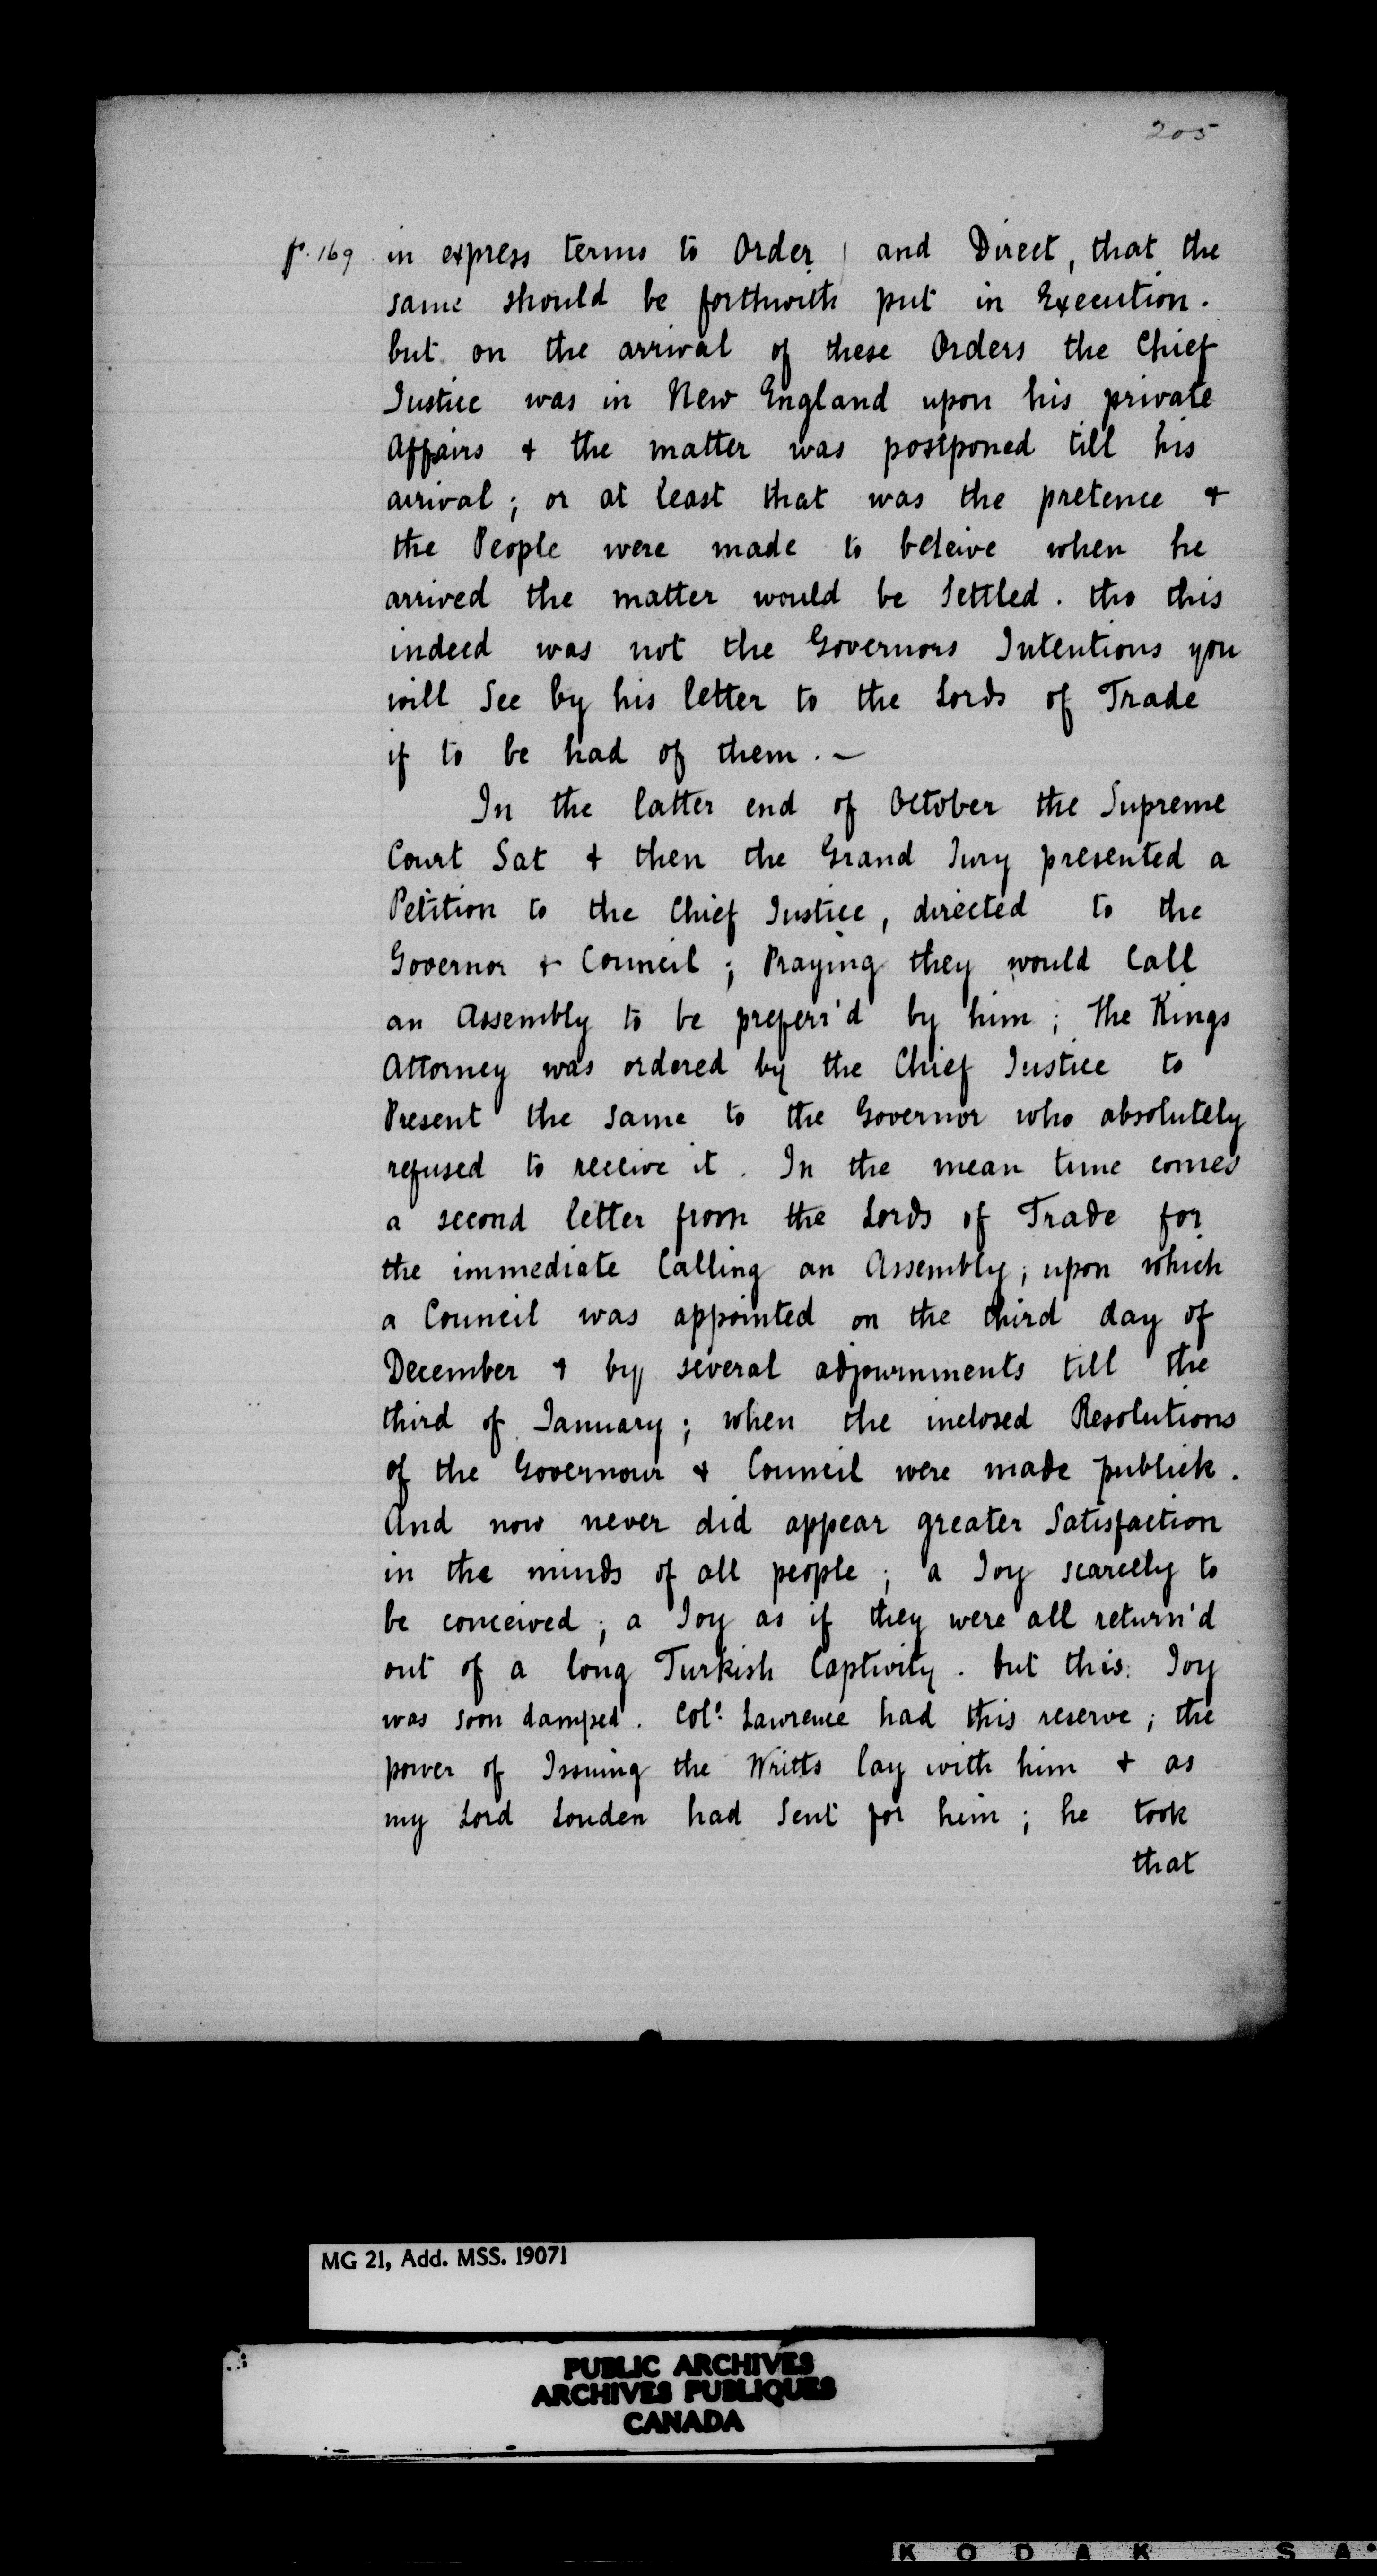 205
f. 169 in express terms to Order | and Direct, that the
same should be forthwith put in Execution.
but on the arrival of these Orders the Chief
Justice was in New England upon his private
Affairs & the matter was postponed till his
arrival; or at least that was the pretence &
the People were made to beleive when he
arrived the matter would be Settled. tho this
indeed was not the Governors Intentions you
will See by his letter to the Lords of Trade
if to be had of them. —
In the latter end of October the Supreme
Court Sat & then the Grand Jury presented a
Petition to the Chief Justice, directed to the
Governor & Council; Praying they would Call
an Assembly to be preferr'd by him; the Kings
Attorney was ordered by the Chief Justice to
Present the same to the Governor who absolutely
refused to receive it. In the mean time comes
a second letter from the Lords of Trade for
the immediate Calling an Assembly; upon which
a Council was appointed on the third day of
December & by several adjournments till the
third of January; when the inclosed Resolutions
of the Governour & Council were made publick.
And now never did appear greater Satisfaction
in the minds of all people; a Joy scarcely to
be conceived; a Joy as if they were all return'd
out of a long Turkish Captivity. but this Joy
was soon damped. Col: Lawrence had this reserve; the
power of Issuing the Writts lay with him & as
my Lord Louden had Sent for him; he took
that
MG 21, Add. MSS. 19071
PUBLIC ARCHIVES
ARCHIVES PUBLIQUES
CANADA
KODAK SA